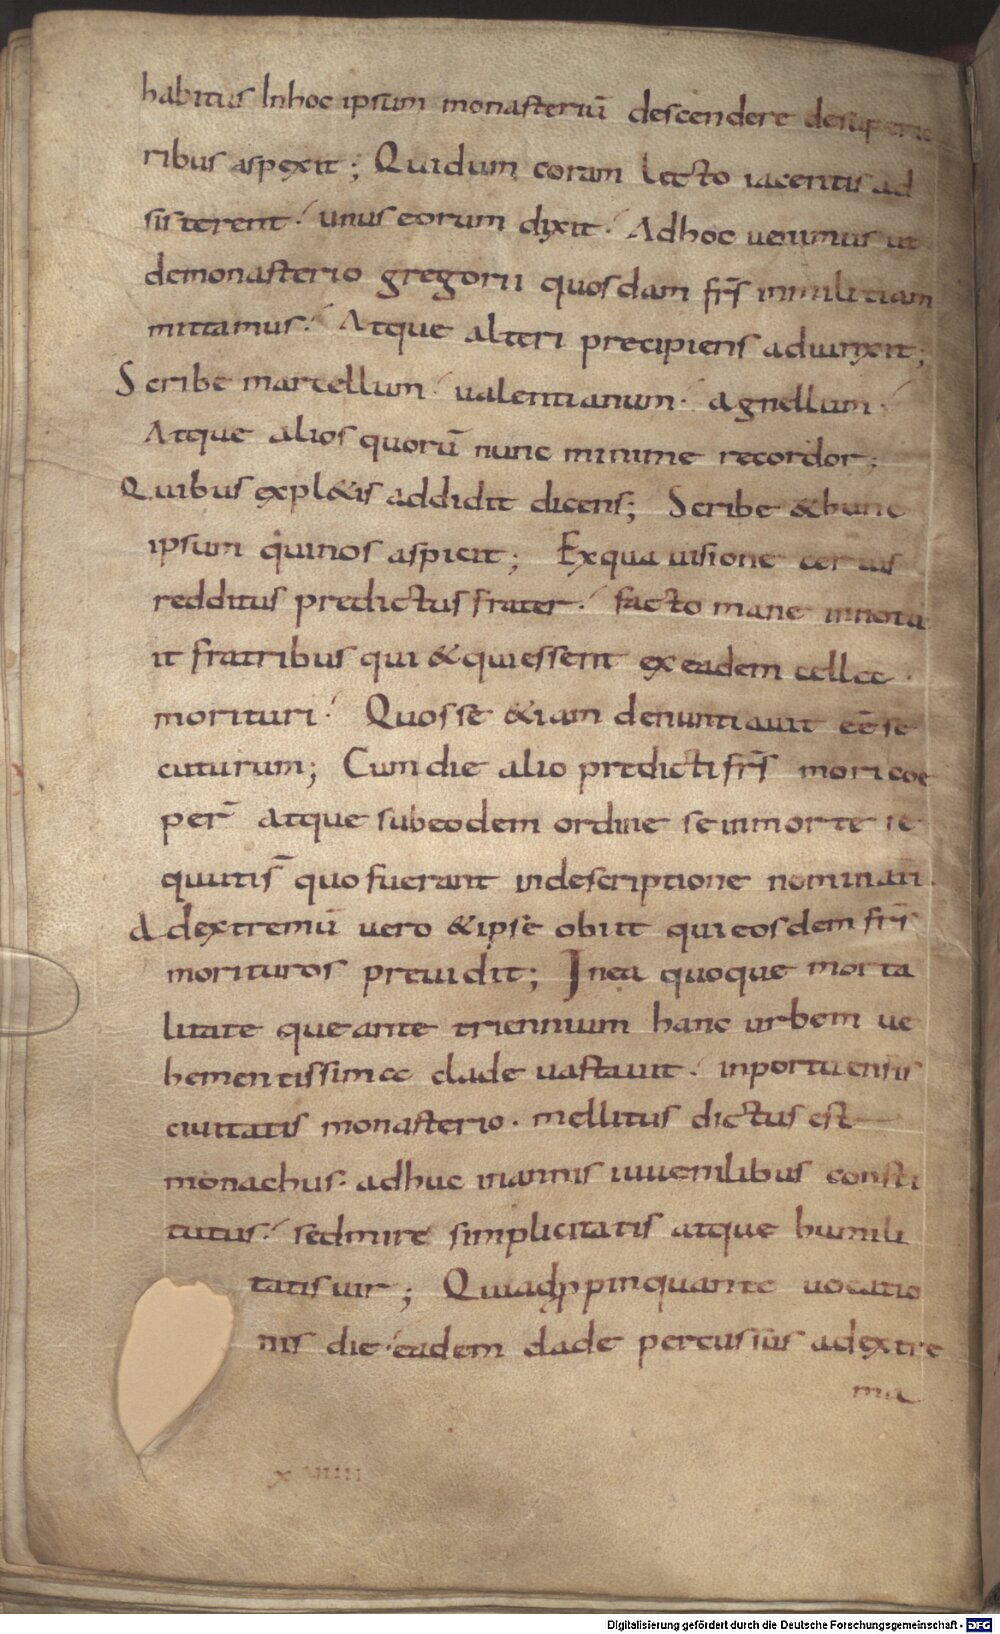 habitus Inhoc ipsum monasteriū descendere desuperio
ribus aspexit; Quidum coram lecto iacentis ad
sisterent unus eorum dixit Adhoc uenimus ut
demonasterio gregorii quosdam frs̄ inmilitiam
mittamus. Atque alteri precipiens adiunxit;
Scribe marcellum ualentianum. agnellum.
Atque alios quorū nunc minime recordor;
Quibus expl&is addidit dicens; Scribe &hunc
ipsum quinos aspicit; Exqua uisione certus
redditus predictus frater. facto mane innotu
it fratribus qui &quiessent ex eadem cellae
morituri. Quos se &iam denuntiauit eē se
cuturum; Cumdie alio predicti frs̄ mori coe
per̄ atque subeodem ordine se inmorte se
quutis̄ quo fuerant indescriptione nominati.
Adextremū uero &ipse obiit qui eosdem frs̄
morituros preuidit; Inea quoque morta
litate que ante triennium hanc urbem ue
hementissimae clade uastauit. inportuensis
ciuitatis monasterio. mellitus dictus est
monachus. adhuc inannis iuuenilibus consti
tutus. sedmire simplicitatis atque humili
tatis uir; Qui adppinquante uocatio
nis die eadem clade percussus adextre
ma
x uiiii
Digitalisierung gefördert durch die Deutsche Forschungsgemeinschaft - DFG